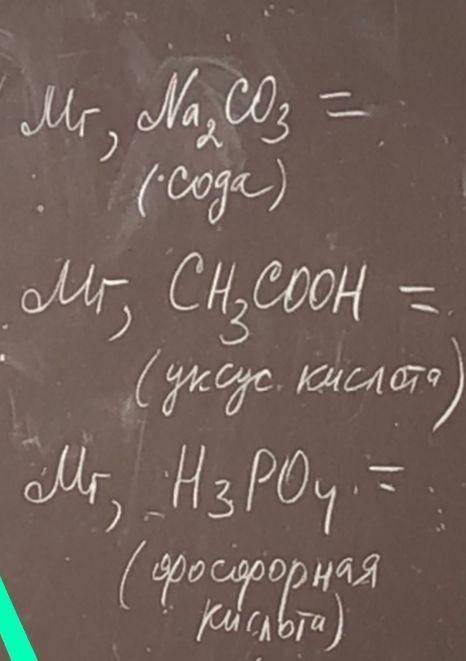 Mr, Na₂CO₃ =
(сода)
Mr, CH₃COOH =
(уксус. кислота)
Mr, H₃PO₄ =
(фосфорная
кислота)